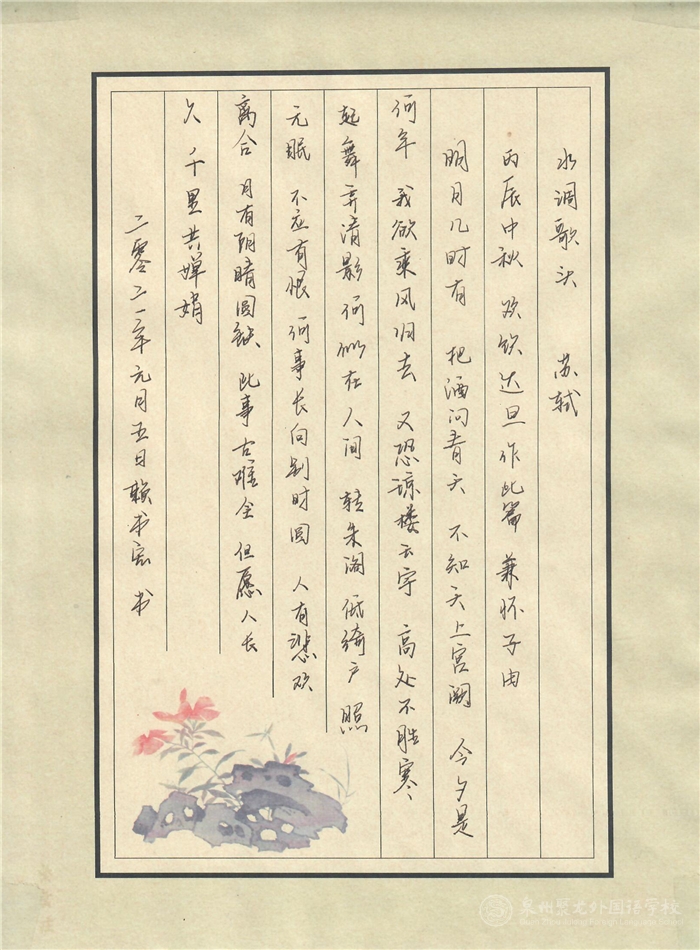 水调歌头 苏轼
丙辰中秋 欢饮达旦 作此篇 兼怀子由
明月几时有 把酒问青天 不知天上宫阙 今夕是
何年 我欲乘风归去 又恐琼楼玉宇 高处不胜寒
起舞弄清影 何似在人间 转朱阁 低绮户 照
无眠 不应有恨 何事长向别时圆 人有悲欢
离合 月有阴晴圆缺 此事古难全 但愿人长
久 千里共婵娟
二零二一年元月五日 赖书宏 书
泉州聚龙外国语学校